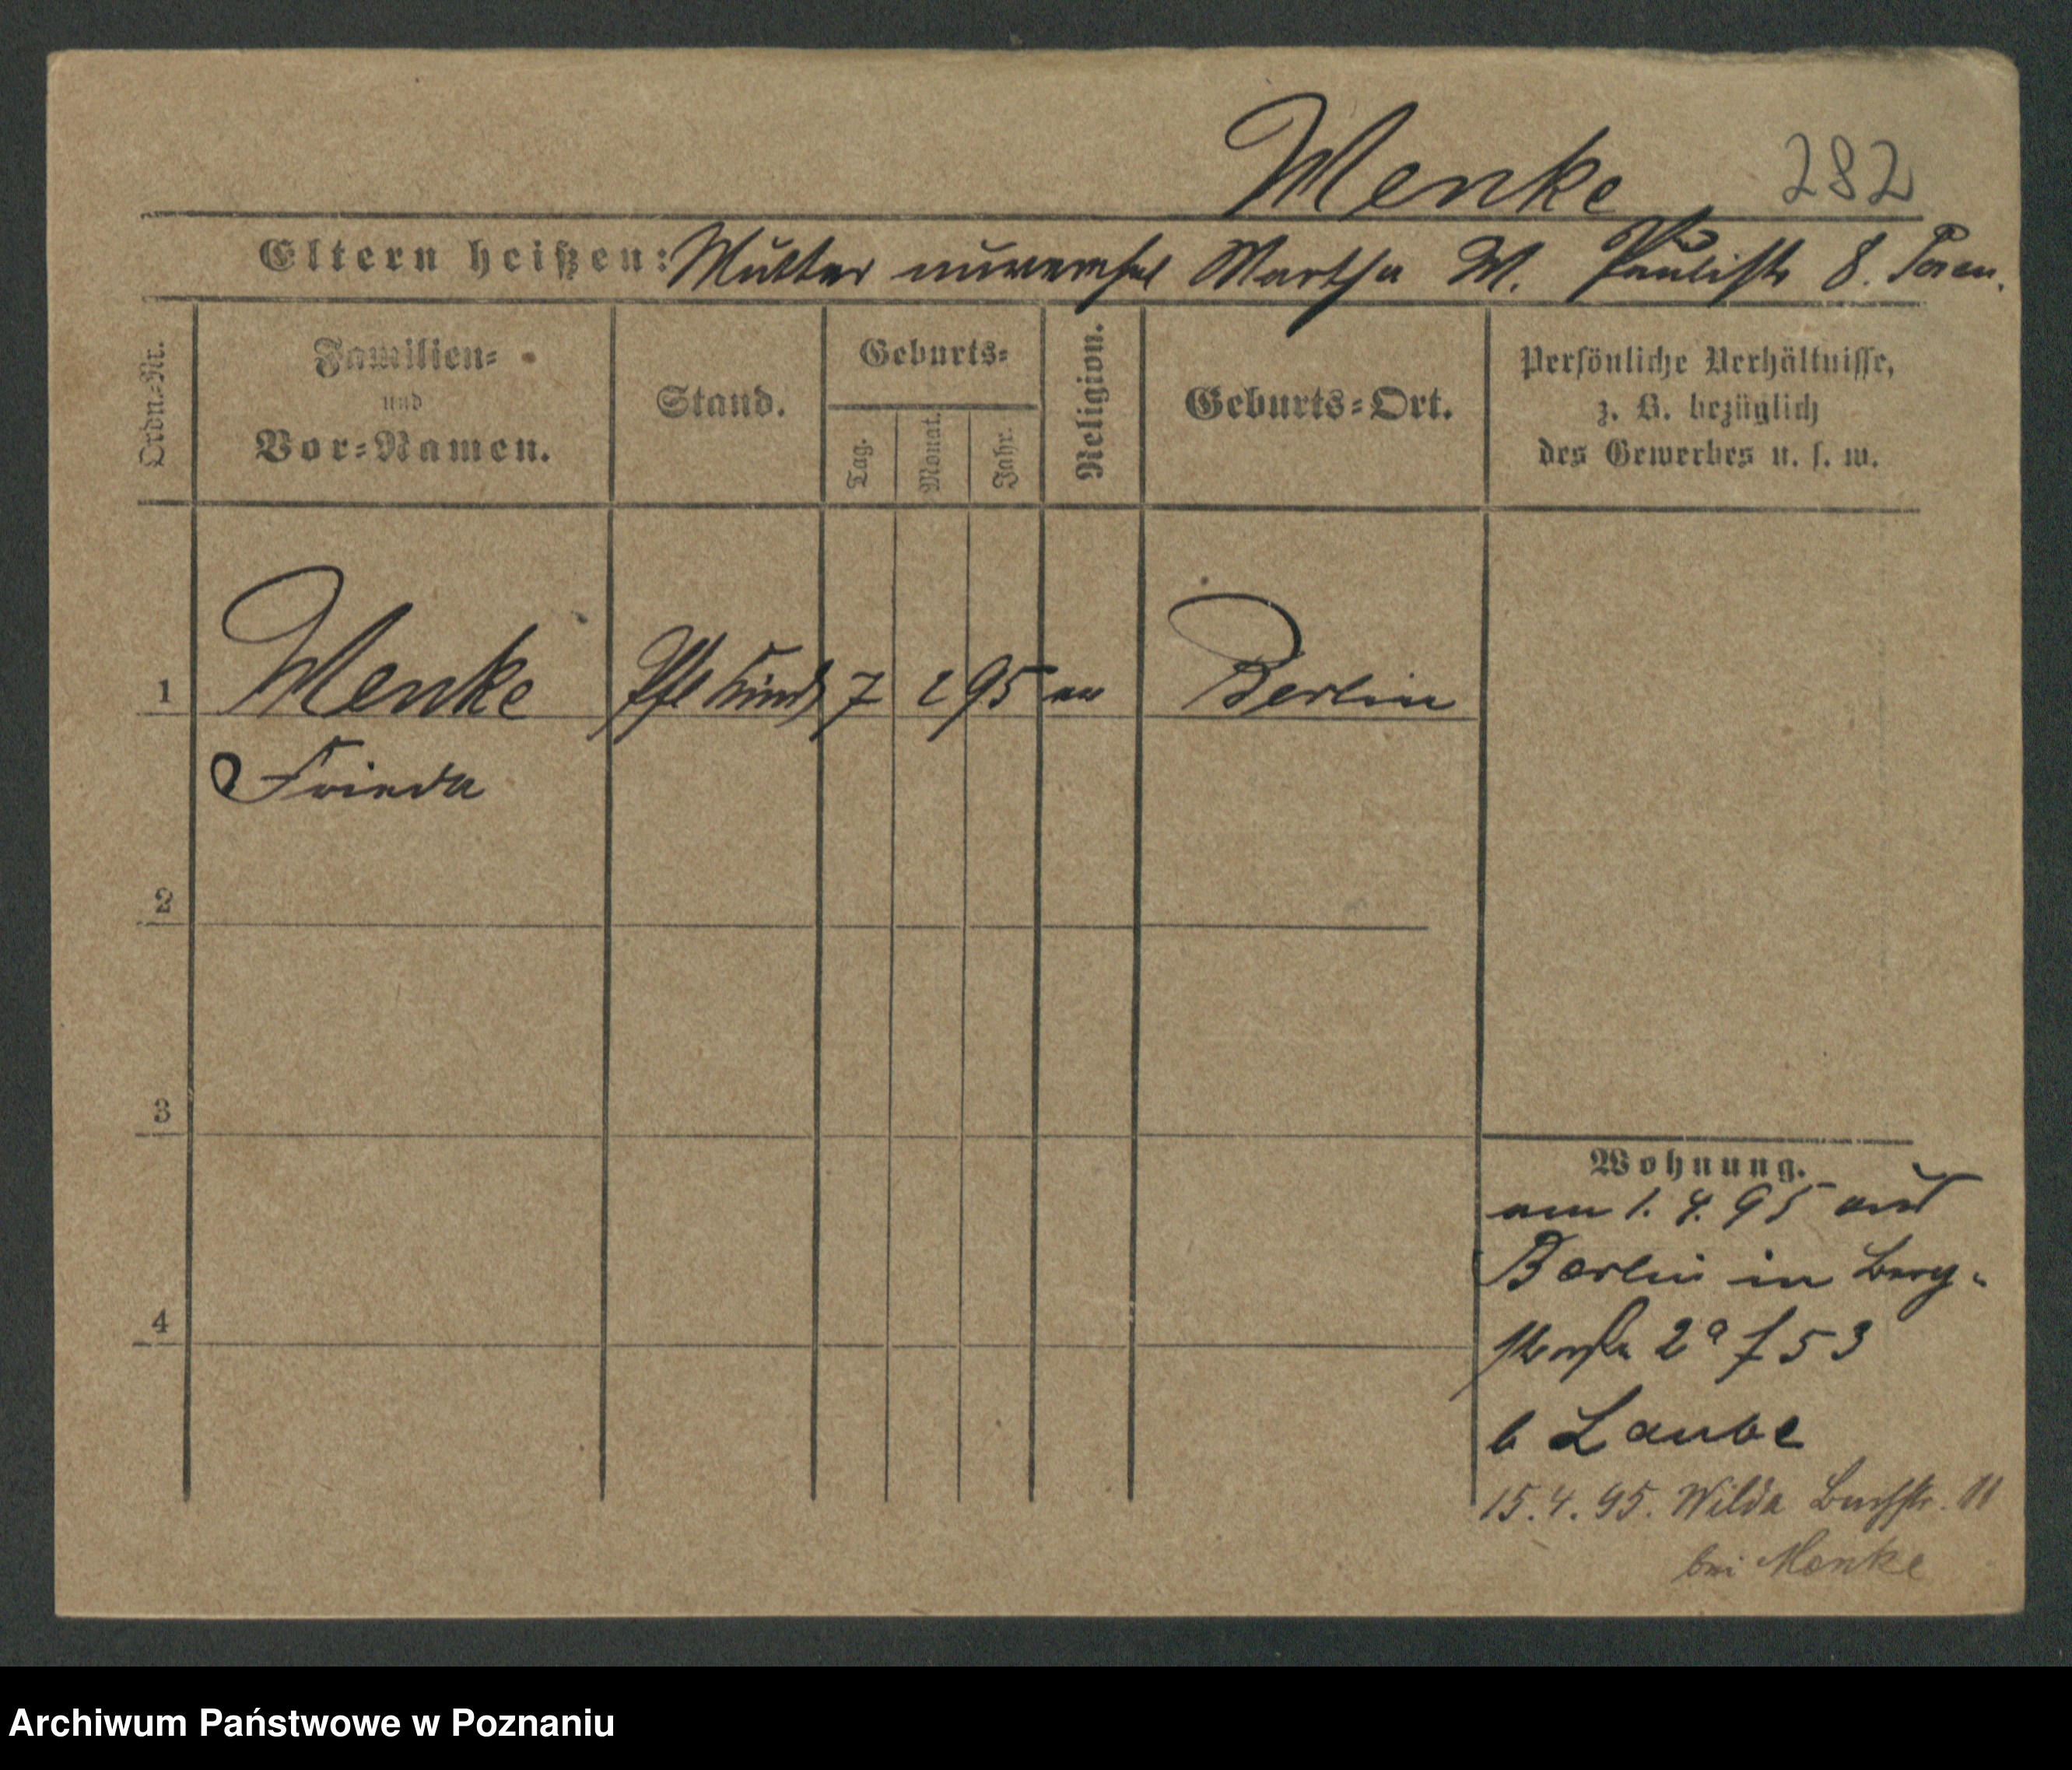 Menke 282
Eltern heißen: Mutter unverehel Martha M. Paulistr 8. Posen.
Ordn.=Nr.
Familien=
und
Vor=Namen.
Stand.
Geburts=
Tag.
Monat.
Jahr.
Religion.
Geburts=Ort.
Persönliche Verhältnisse,
z. B. bezüglich
des Gewerbes u. s. w.
1 Menke Pfl Kind 7 2 95 Berlin
Frieda
2
3
4
Wohnung.
am 1. 4. 95 aus
Berlin in Berg-
straße 2a 53
b Laube
15.4.95. Wilda 11
bei Menke
Archiwum Państwowe w Poznaniu